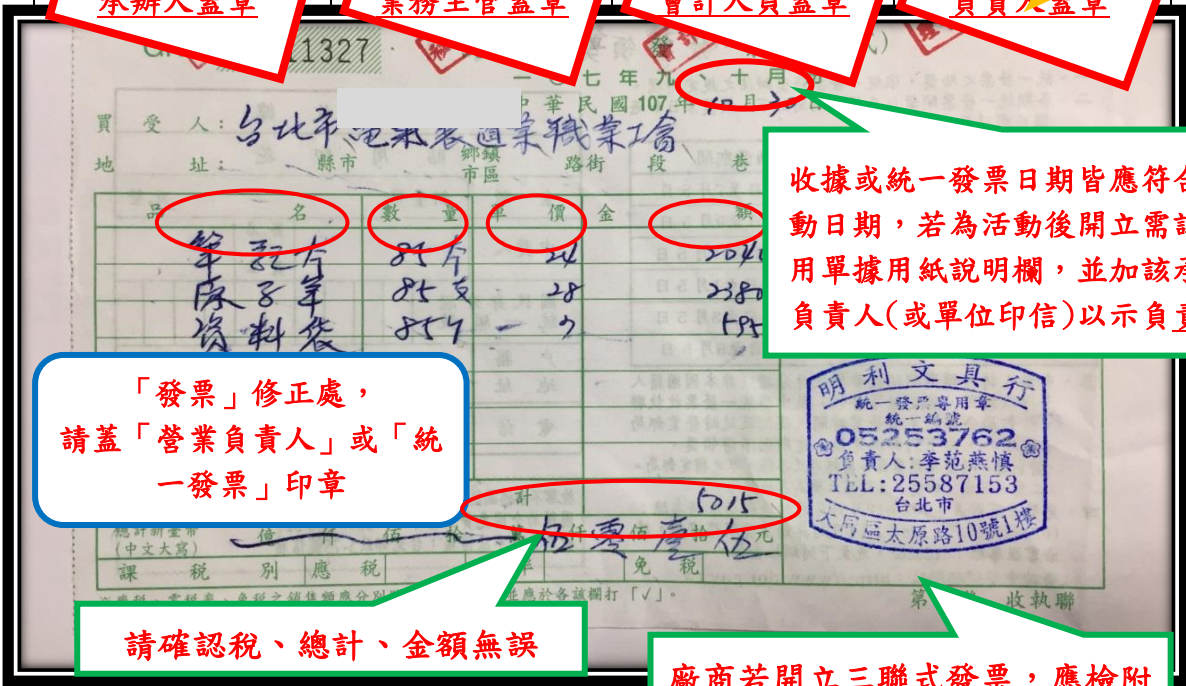 承辦人蓋章
業務主管蓋章
會計人員蓋章
負責人蓋章
11327
一〇七年九、十月
中華民國107年10月30日
買受人：台北市 電氣裝置業職業工會
地址：縣市 鄉鎮市區 路街 段 巷
品名 數量 單價 金額
筆記本 85本 24 2040
原子筆 85支 28 2380
資料袋 85個 7 595
收據或統一發票日期皆應符合
動日期，若為活動後開立需
用單據用紙說明欄，並加該承
負責人(或單位印信)以示負責
「發票」修正處，
請蓋「營業負責人」或「統
一發票」印章
明利文具行
統一發票專用章
統一編號
05253762
負責人:李范燕慎
TEL:25587153
台北市
大同區太原路10號1樓
計 5015
總計新臺幣
(中文大寫)
億 仟 佰 拾 萬 伍仟零佰壹拾伍元
課稅別 應稅 免稅
並應於各該欄打「√」。
收執聯
請確認稅、總計、金額無誤
廠商若開立三聯式發票，應檢附